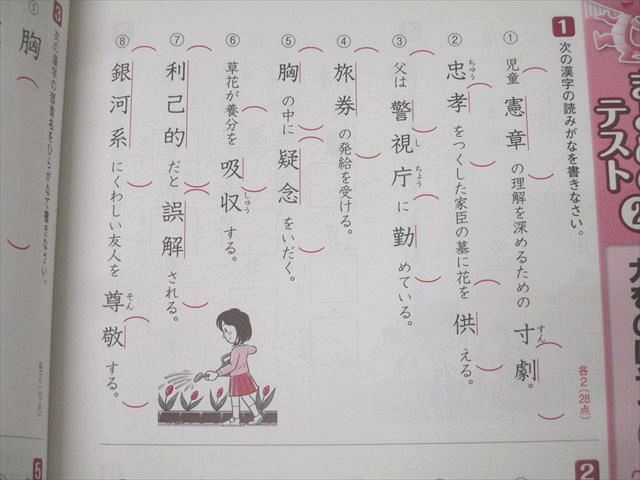 テスト2
1 次の漢字の読みがなを書きなさい。
各2(28点)
① 児童憲章の理解を深めるための寸劇。
すん
② 忠孝をつくした家臣の墓に花を供える。
ちゅう
③ 父は警視庁に勤めている。
し ちょう
④ 旅券の発給を受ける。
⑤ 胸の中に疑念をいだく。
⑥ 草花が養分を吸収する。
しゅう
⑦ 利己的だと誤解される。
⑧ 銀河系にくわしい友人を尊敬する。
そん
2
3 次の漢字の部首名をひらがなで書きなさい。
① 胸
5